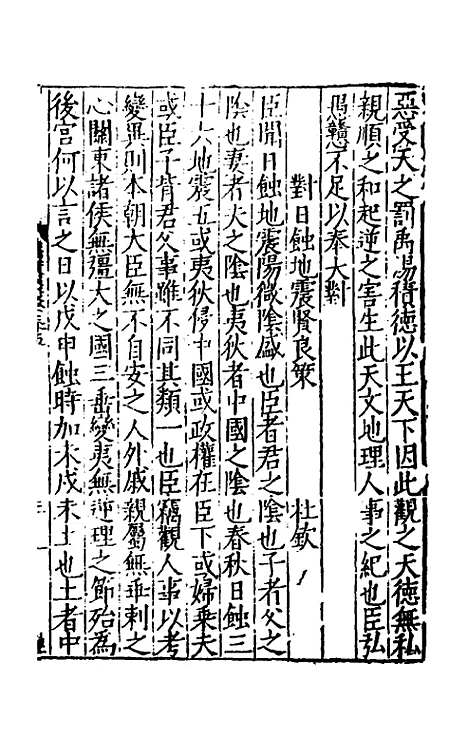 惡受天之罰禹昜積德以王天下因此觀之天德無私
親順之和起逆之害生此天文地理人事之紀也臣弘
愚戇不足以奉大對
對日蝕地震賢良策 杜欽
臣聞日蝕地震陽微陰盛也臣者君之陰也子者父之
陰也妻者夫之陰也夷狄者中國之陰也春秋日蝕三
十六地震五或夷狄侵中國或政權在臣下或婦乗夫
或臣子背君父事雖不同其類一也臣竊觀人事以考
變異則本朝大臣無不自安之人外戚親屬無乖剌之
心關東諸侯無彊大之國三垂蠻夷無逆理之節殆為
後宫何以言之日以戊申蝕時加未戊未土也土者中